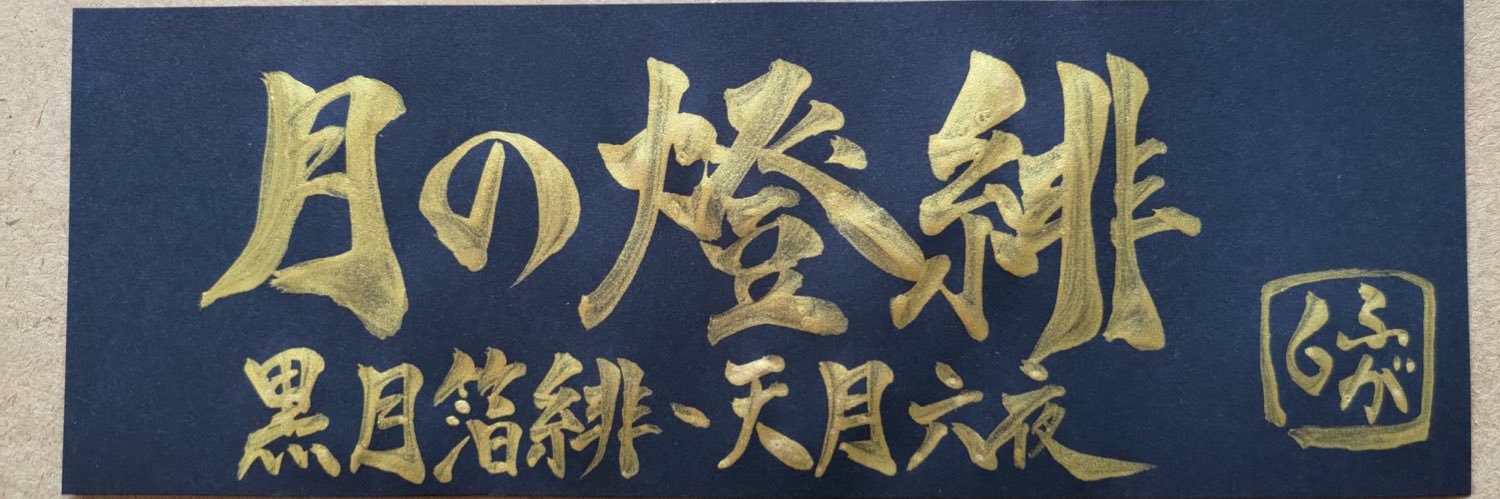 月の燈緋
黒月箔緋、天月六夜
ふが